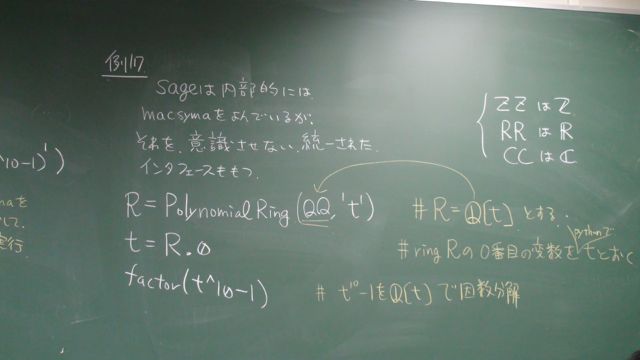 例17
sageは内部的には
macsymaをよんでいるが、
それを、意識させない、統一された
インタフェースをもつ.
ZZ は ℤ
RR は ℝ
CC は ℂ
10-1)')
R = Polynomial Ring (QQ, 't')
# R = ℚ[t] とする.
t = R.0
pythonで
# ring R の 0番目の変数を t とおく
factor(t^10-1)
# t^10-1 を ℚ[t] で因数分解
maを
して.
実行